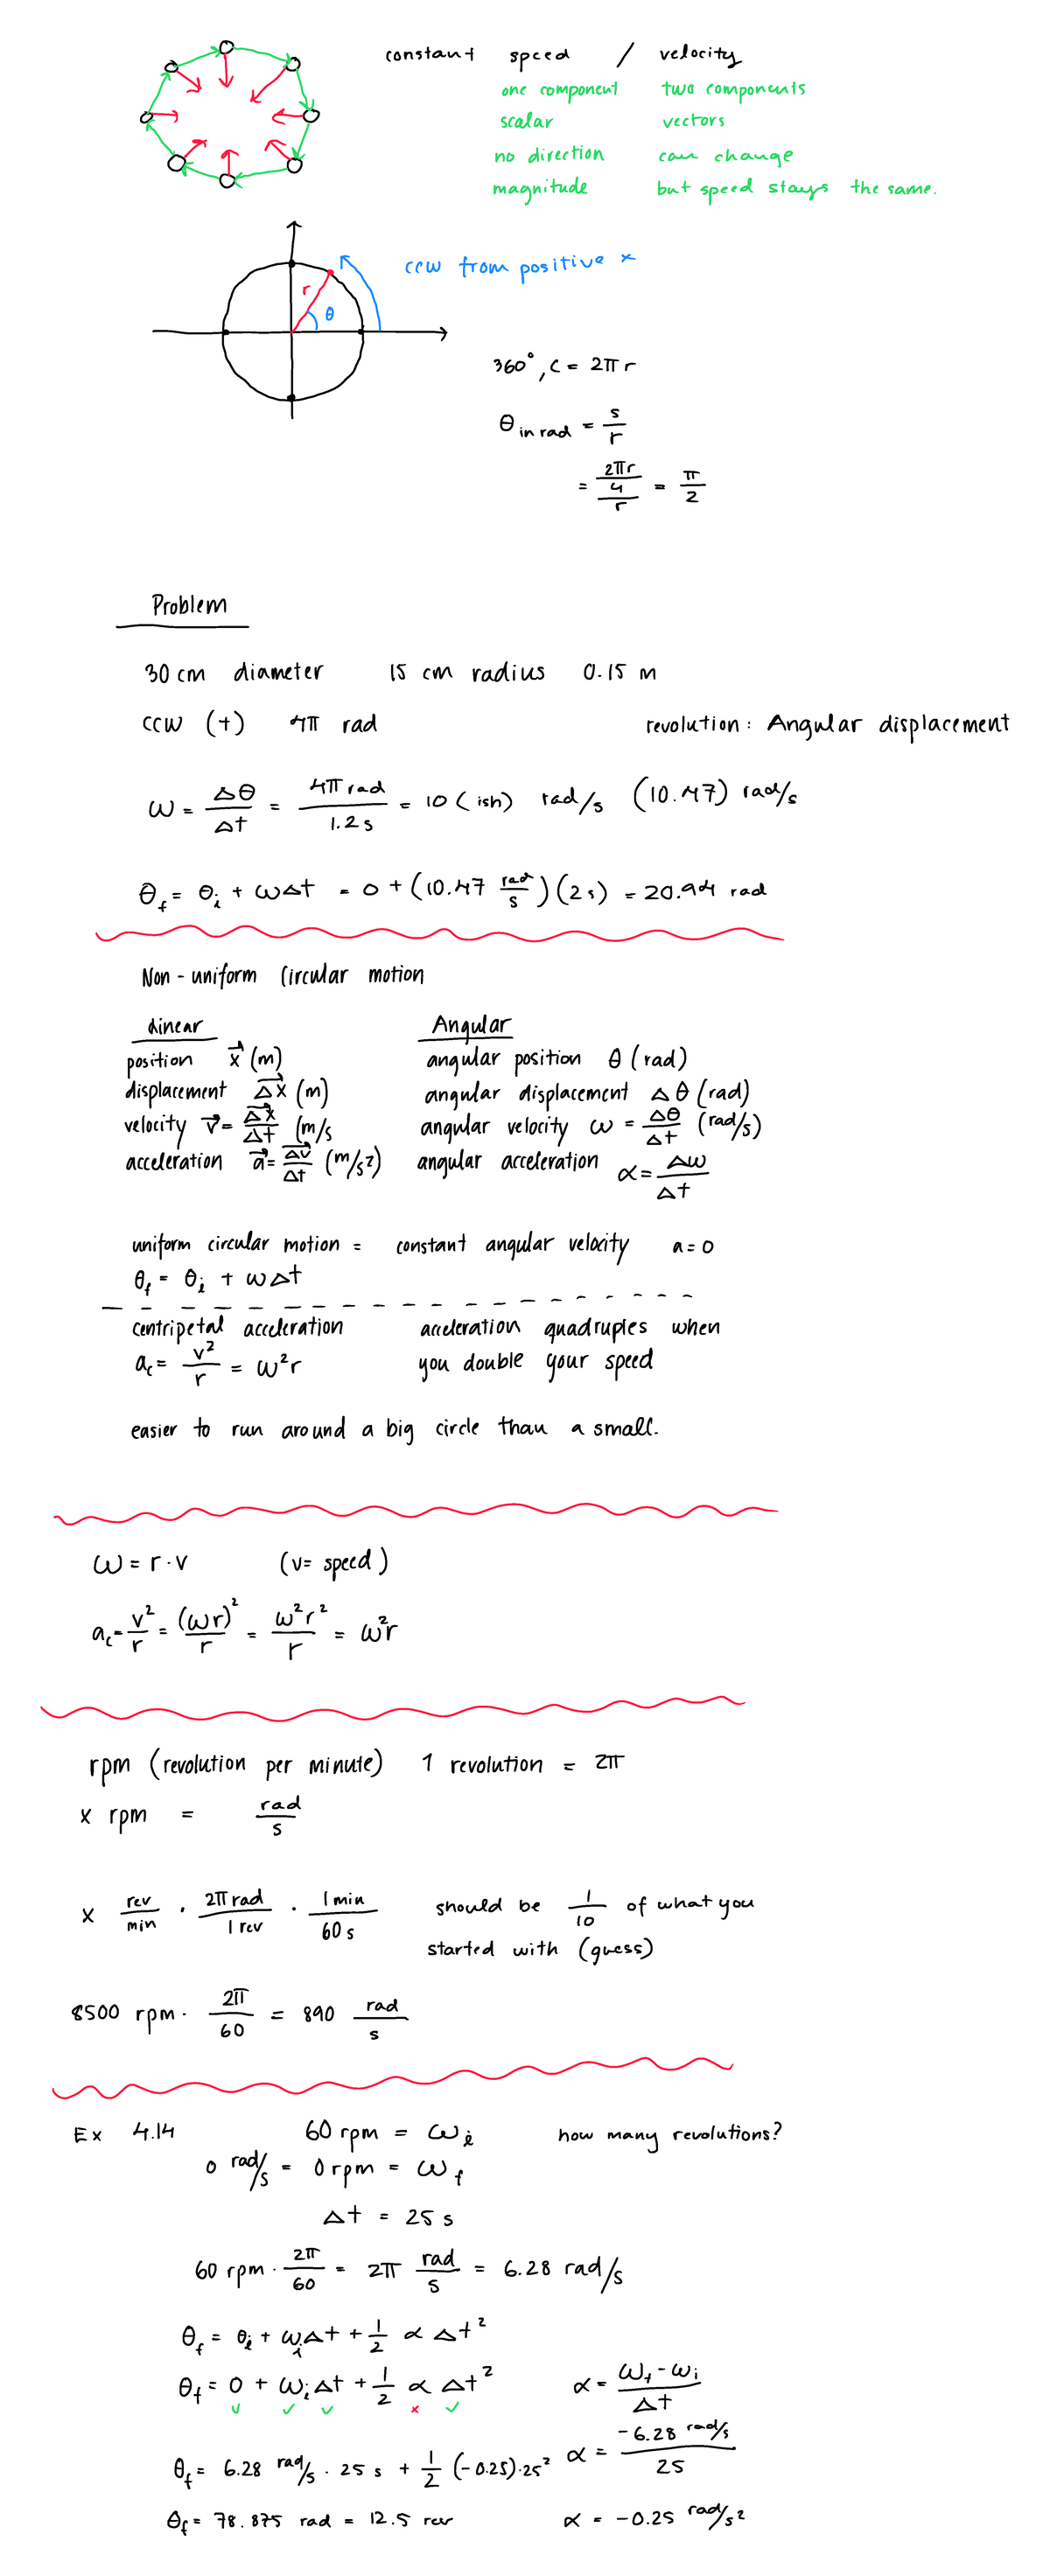 constant speed / velocity
one component two components
scalar vectors
no direction can change
magnitude but speed stays the same.
ccw from positive x
r
θ
360°, C = 2πr
θ in rad = s/r
= (2πr/4)/r = π/2
Problem
30 cm diameter 15 cm radius 0.15 m
CCW (+) 4π rad revolution: Angular displacement
ω = Δθ/Δt = 4π rad/1.2 s = 10 (ish) rad/s (10.47) rad/s
θf = θi + ωΔt = 0 + (10.47 rad/s)(2 s) = 20.94 rad
Non-uniform Circular motion
Linear Angular
position x⃗ (m) angular position θ (rad)
displacement Δx⃗ (m) angular displacement Δθ (rad)
velocity v⃗ = Δx⃗/Δt (m/s angular velocity ω = Δθ/Δt (rad/s)
acceleration a⃗ = Δv⃗/Δt (m/s²) angular acceleration α = Δω/Δt
uniform circular motion = constant angular velocity a = 0
θf = θi + ωΔt
centripetal acceleration acceleration quadruples when
ac = v²/r = ω²r you double your speed
easier to run around a big circle than a small.
ω = r · v (v = speed)
ac = v²/r = (ωr)²/r = ω²r²/r = ω²r
rpm (revolution per minute) 1 revolution = 2π
x rpm = rad/s
x rev/min · 2π rad/1 rev · 1 min/60 s should be 1/10 of what you
started with (guess)
8500 rpm · 2π/60 = 890 rad/s
Ex 4.14 60 rpm = ωi how many revolutions?
0 rad/s = 0 rpm = ωf
Δt = 25 s
60 rpm · 2π/60 = 2π rad/s = 6.28 rad/s
θf = θi + ωiΔt + 1/2 α Δt²
θf = 0 + ωiΔt + 1/2 α Δt² α = (ωf - ωi)/Δt
θf = 6.28 rad/s · 25 s + 1/2 (-0.25)·25² α = -6.28 rad/s/25
θf = 78.875 rad = 12.5 rev α = -0.25 rad/s²